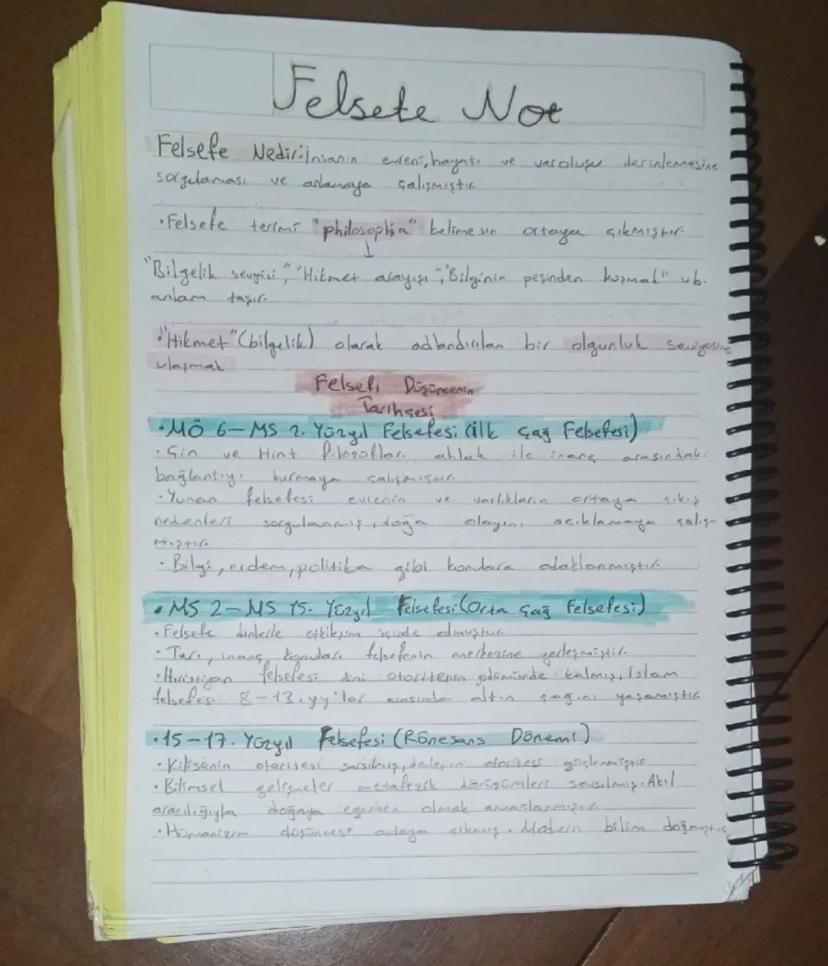 Felsefe Not
Felsefe Nedir: İnsanın evreni, hayatı ve varoluşu derinlemesine
sorgulaması ve anlamaya çalışmıştır.
• Felsefe terimi "philosophia" kelimesin ortaya çıkmıştır.
↓
"Bilgelik sevgisi", "Hikmet arayışı", "Bilginin peşinden koşmak" vb.
anlam taşır.
• "Hikmet" (bilgelik) olarak adlandırılan bir olgunluk seviyesine
ulaşmak
Felsefi Düşüncenin
Tarihçesi
• MÖ 6-MS 2. Yüzyıl Felsefesi (İlk Çağ Felsefesi)
• Çin ve Hint filozofları ahlak ile inanç arasındaki
bağlantıyı kurmaya çalışmıştır.
• Yunan felsefesi evrenin ve varlıkların ortaya çıkış
nedenleri sorgulanmış, doğa olayını açıklamaya çalış-
mıştır.
• Bilgi, erdem, politika gibi konulara odaklanmıştır.
• MS 2-MS 15. Yüzyıl Felsefesi (Orta Çağ Felsefesi)
• Felsefe dinlerle etkileşim içinde olmuştur.
• Tanrı, inanç konuları felsefenin merkezine yerleşmiştir.
• Hıristiyan felsefesi dini otoritenin kalmış, İslam
felsefesi 8-13. yy'lar arasında altın çağını yaşamıştır.
• 15-17. Yüzyıl Felsefesi (Rönesans Dönemi)
• Kilisenin otoritesi sarsılmış, otoritesi güçlenmiştir
• Bilimsel gelişmeler metafizik sarsılmış. Akıl
aracılığıyla doğaya egemen olmak amaçlanmıştır.
• Hümanizm düşüncesi ortaya çıkmış. Modern bilim doğmuştur